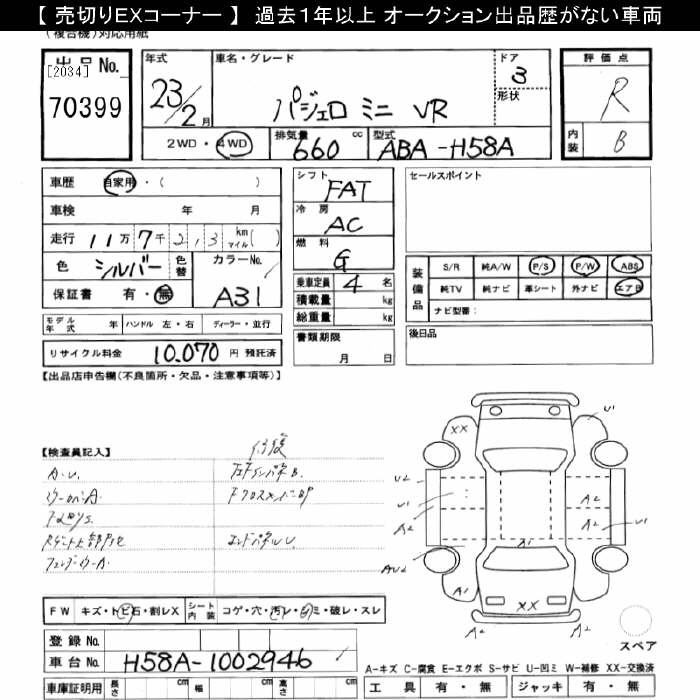 【 売切りEXコーナー 】 過去1年以上 オークション出品歴がない車両
(複合機)対応用紙
出品No. [2034] 70399
年式 23/2月
車名・グレード パジェロ ミニ VR
ドア 3
形状
評価点 R
内装 B
2WD・4WD
排気量 660 cc
型式 ABA-H58A
車歴 自家用・( )
車検 年 月
走行 11万7千2,3 km マイル( )
色 シルバー 色替
カラーNo. A31
保証書 有・無
モデル年式 年 ハンドル 左・右 ディーラー・並行
リサイクル料金 10,070 円 預託済
シフト FAT
冷房 AC
燃料 G
乗車定員 4 名
積載量 kg
総重量 kg
書類期限 月 日
セールスポイント
装備品
S/R 純A/W P/S P/W ABS
純TV 純ナビ 革シート 外ナビ エアB
ナビ型番:
後日品
【出品店申告欄(不良箇所・欠品・注意事項等)】
【検査員記入】
修復
A.U.
エンドパネルU
XX U1
U2 A2
U1 A2 U1
A2 A1
AU2
A1 XX
A2 A2
スペア
FW キズ・トビ石・割レX
シート内装 コゲ・穴・汚レ・シミ・破レ・スレ
登録No.
車台No. H58A-1002946
車庫証明用 長さ cm 幅 cm 高さ cm
A-キズ C-腐食 E-エクボ S-サビ U-凹ミ W-補修 XX-交換済
工具 有・無 ジャッキ 有・無